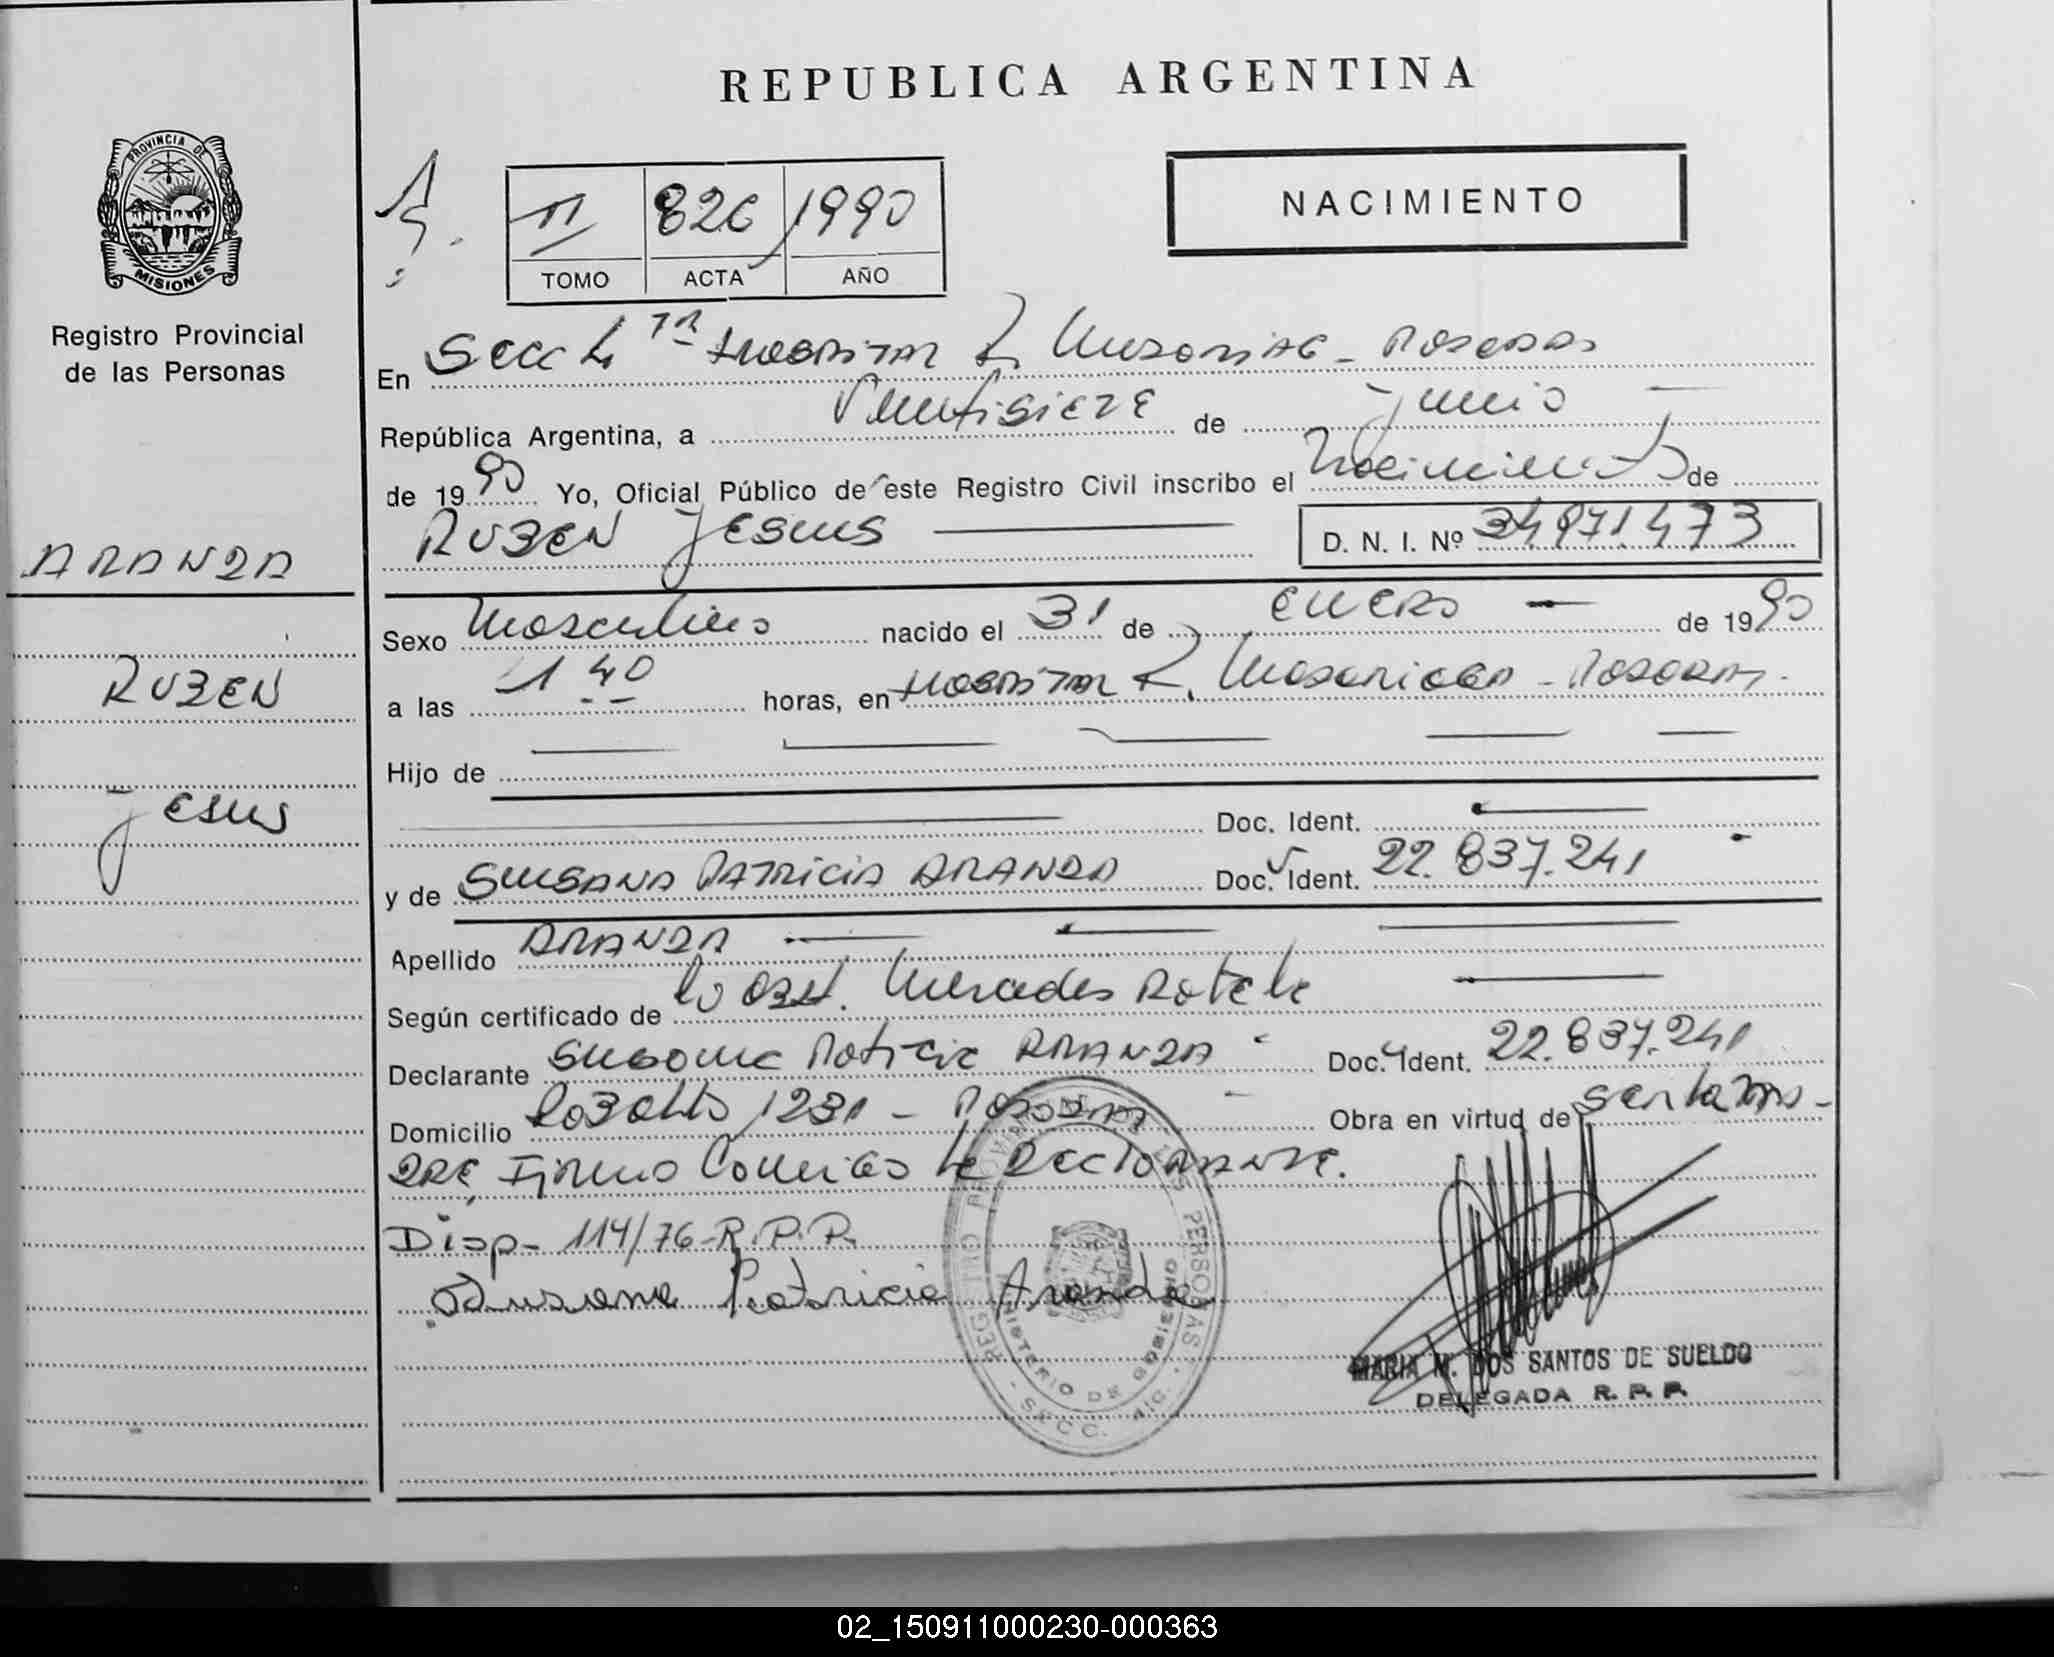 REPUBLICA ARGENTINA
PROVINCIA DE
MISIONES
Registro Provincial
de las Personas
II 826 1990
TOMO ACTA AÑO
NACIMIENTO
En Secc 4 7a Hospital R. Madariaga - Posadas
República Argentina, a Veintisiete de junio
de 1990 Yo, Oficial Público de este Registro Civil inscribo el Nacimiento de
RUBEN JESUS D. N. I. Nº 34971.473
ARANDA
RUBEN
JESUS
Sexo Masculino nacido el 31 de ENERO de 1990
a las 1 40 horas, en Hospital R. Madariaga - Posadas.
Hijo de
Doc. Ident.
y de SUSANA PATRICIA ARANDA Doc. Ident. 22.837.241
Apellido ARANDA
Según certificado de la Obst. Mercedes
Declarante Susana Patricia ARANDA Doc. Ident. 22.837.241
Domicilio 1231 - Posadas Obra en virtud de ser la
DRE, Firma Conmigo la Declarante.
Disp- 114/76-R.P.P.
Susana Patricia Aranda
REGISTRO PROVINCIAL DE LAS PERSONAS
MINISTERIO DE GOBIERNO
SECC. 4
MARIA M. DOS SANTOS DE SUELDO
DELEGADA R. P. P.
02_150911000230-000363